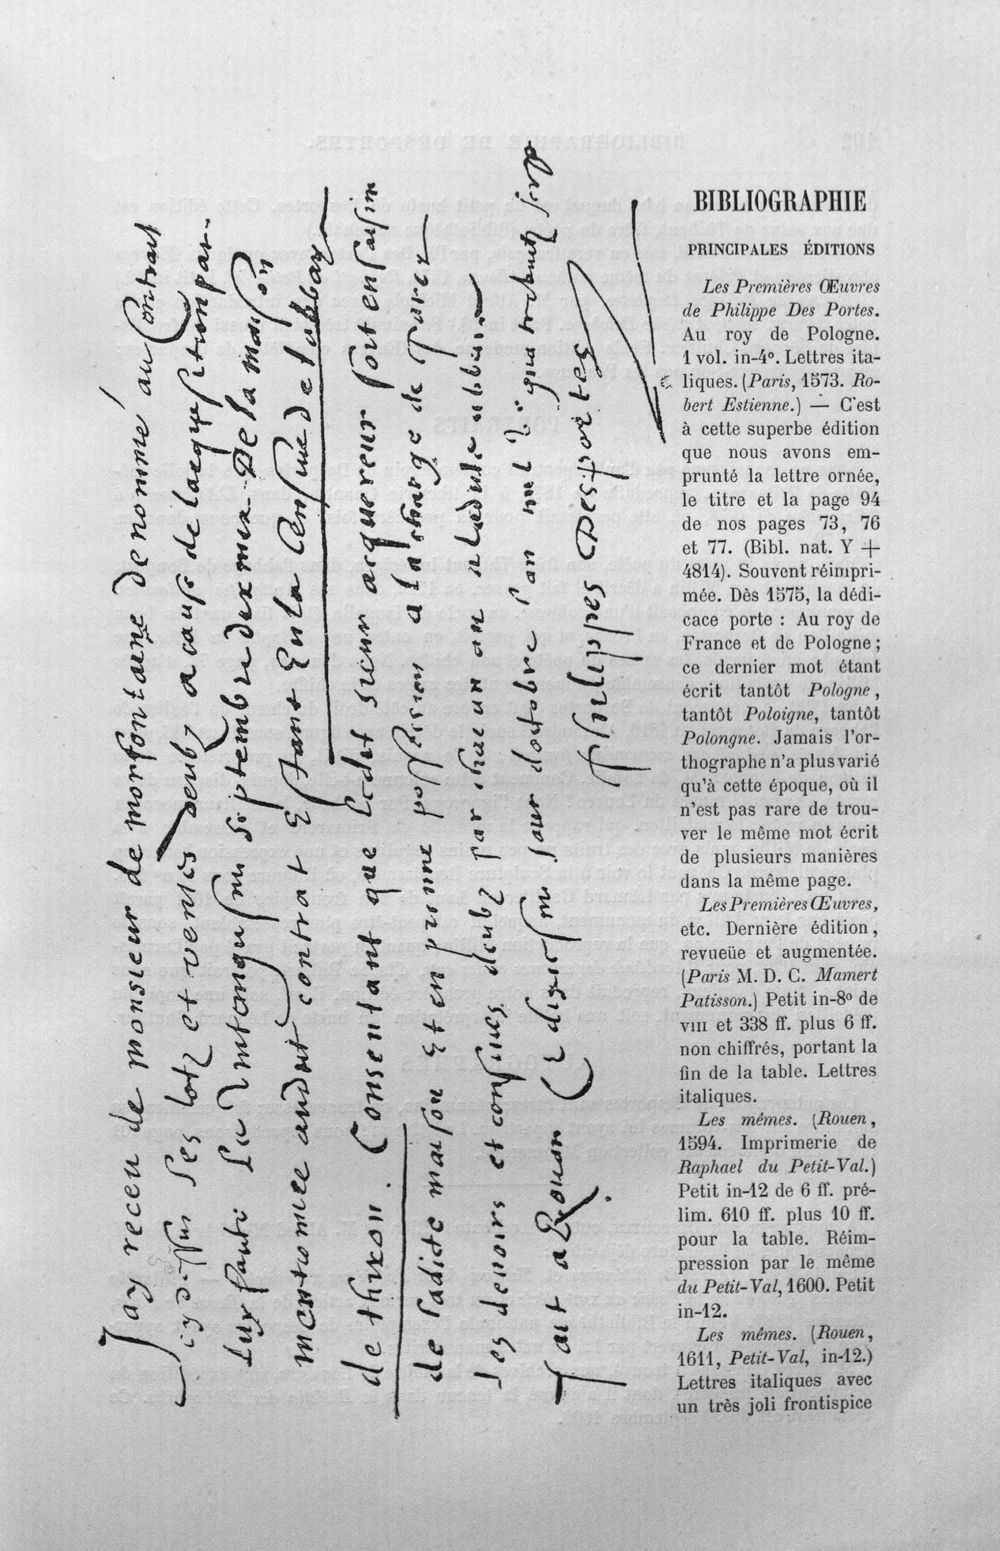 Jay receu de monsieur de morfontaine denommé au Contract
cy dessus les lotz et ventes deubz a cause de lacquisition par
luy faicte Le septembre dernier De la maison
mentionnee audict contrat Estant En la Censive de labbaye
de thiron. Consentant que ledict sieur acquereur soit ensaisiné
de ladicte maison Et en prenne possession a la charge de payer
les devoirs et censives deubz par chacun an a ladicte abbaie
Fait a Rouan Ce jour doctobre l'an mil
Philippes Desportes
BIBLIOGRAPHIE
PRINCIPALES ÉDITIONS
Les Premières Œuvres
de Philippe Des Portes.
Au roy de Pologne.
1 vol. in-4º. Lettres ita-
liques. (Paris, 1573. Ro-
bert Estienne.) — C'est
à cette superbe édition
que nous avons em-
prunté la lettre ornée,
le titre et la page 94
de nos pages 73, 76
et 77. (Bibl. nat. Y +
4814). Souvent réimpri-
mée. Dès 1575, la dédi-
cace porte : Au roy de
France et de Pologne ;
ce dernier mot étant
écrit tantôt Pologne,
tantôt Poloigne, tantôt
Polongne. Jamais l'or-
thographe n'a plus varié
qu'à cette époque, où il
n'est pas rare de trou-
ver le même mot écrit
de plusieurs manières
dans la même page.
Les Premières Œuvres,
etc. Dernière édition,
revueüe et augmentée.
(Paris M. D. C. Mamert
Patisson.) Petit in-8º de
VIII et 338 ff. plus 6 ff.
non chiffrés, portant la
fin de la table. Lettres
italiques.
Les mêmes. (Rouen,
1594. Imprimerie de
Raphael du Petit-Val.)
Petit in-12 de 6 ff. pré-
lim. 610 ff. plus 10 ff.
pour la table. Réim-
pression par le même
du Petit-Val, 1600. Petit
in-12.
Les mêmes. (Rouen,
1611, Petit-Val, in-12.)
Lettres italiques avec
un très joli frontispice